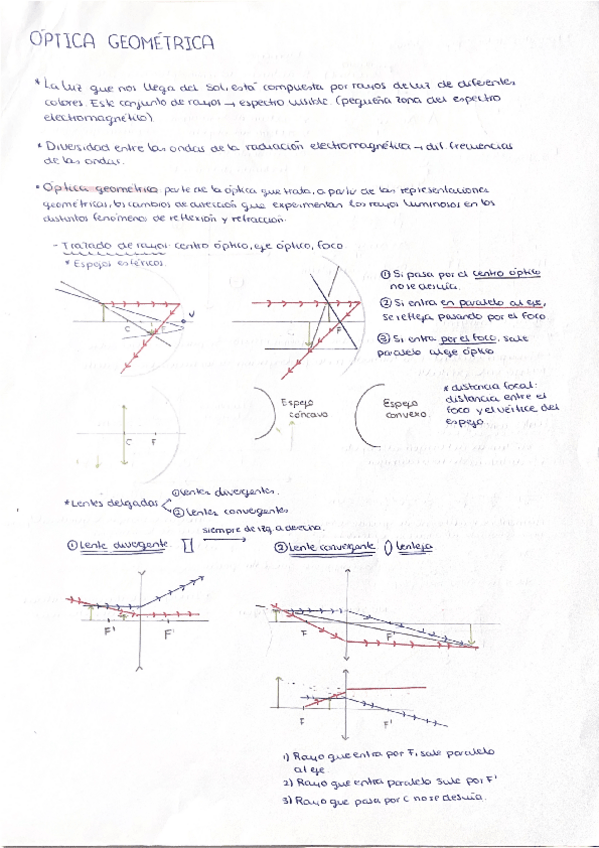 ÓPTICA GEOMÉTRICA
* La luz que nos llega del sol, está compuesta por rayos de luz de diferentes
colores. Este conjunto de rayos → espectro visible. (pequeña zona del espectro
electromagnético)
* Diversidad entre las ondas de la radiación electromagnética → dif. frecuencias
de las ondas.
* Óptica geométrica: parte de la óptica que trata, a partir de las representaciones
geométricas, los cambios de dirección que experimentan los rayos luminosos en los
distintos fenómenos de reflexión y refracción.
- Trazado de rayos: centro óptico, eje óptico, foco
* Espejos esféricos.
① Si pasa por el centro óptico
no se desvía.
② Si entra en paralelo al eje,
se refleja pasando por el foco
③ Si entra por el foco, sale
paralelo al eje óptico
C
V
F
C F
Espejo
cóncavo
Espejo
convexo.
* distancia focal:
distancia entre el
foco y el vértice del
espejo.
* Lentes delgadas
① Lentes divergentes.
② Lentes convergentes
siempre de izq. a derecha.
① Lente divergente.
② Lente convergente () lenteja
F' F'
F F'
F F'
1) Rayo que entra por F, sale paralelo
al eje.
2) Rayo que entra paralelo sale por F'
3) Rayo que pasa por C no se desvía.